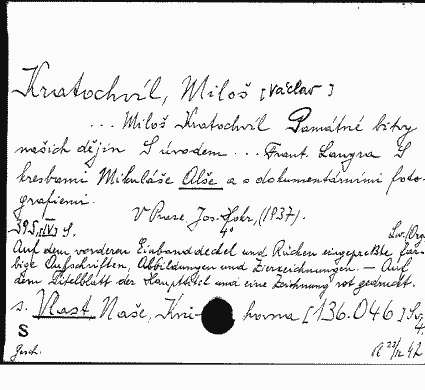 Kratochvíl, Miloš [Václav]
... Miloš Kratochvil Památné bitvy
našich dějin S úvodem ... Frant. Langra S
kresbami Mikuláše Alše a s dokumentárními foto-
grafiemi.
V Praze, Jos. (1937).
395, S. 4°
Auf dem vorderen Einbanddeckel und Rücken eingepreßte far-
bige Aufschriften, Abbildungen und Zierzeichnungen. — Auf
dem Titelblatt der Haupttitel und eine Zeichnung rot gedruckt.
s. Vlast Naše, Kni- hovna [136.046]
S
Gesch.